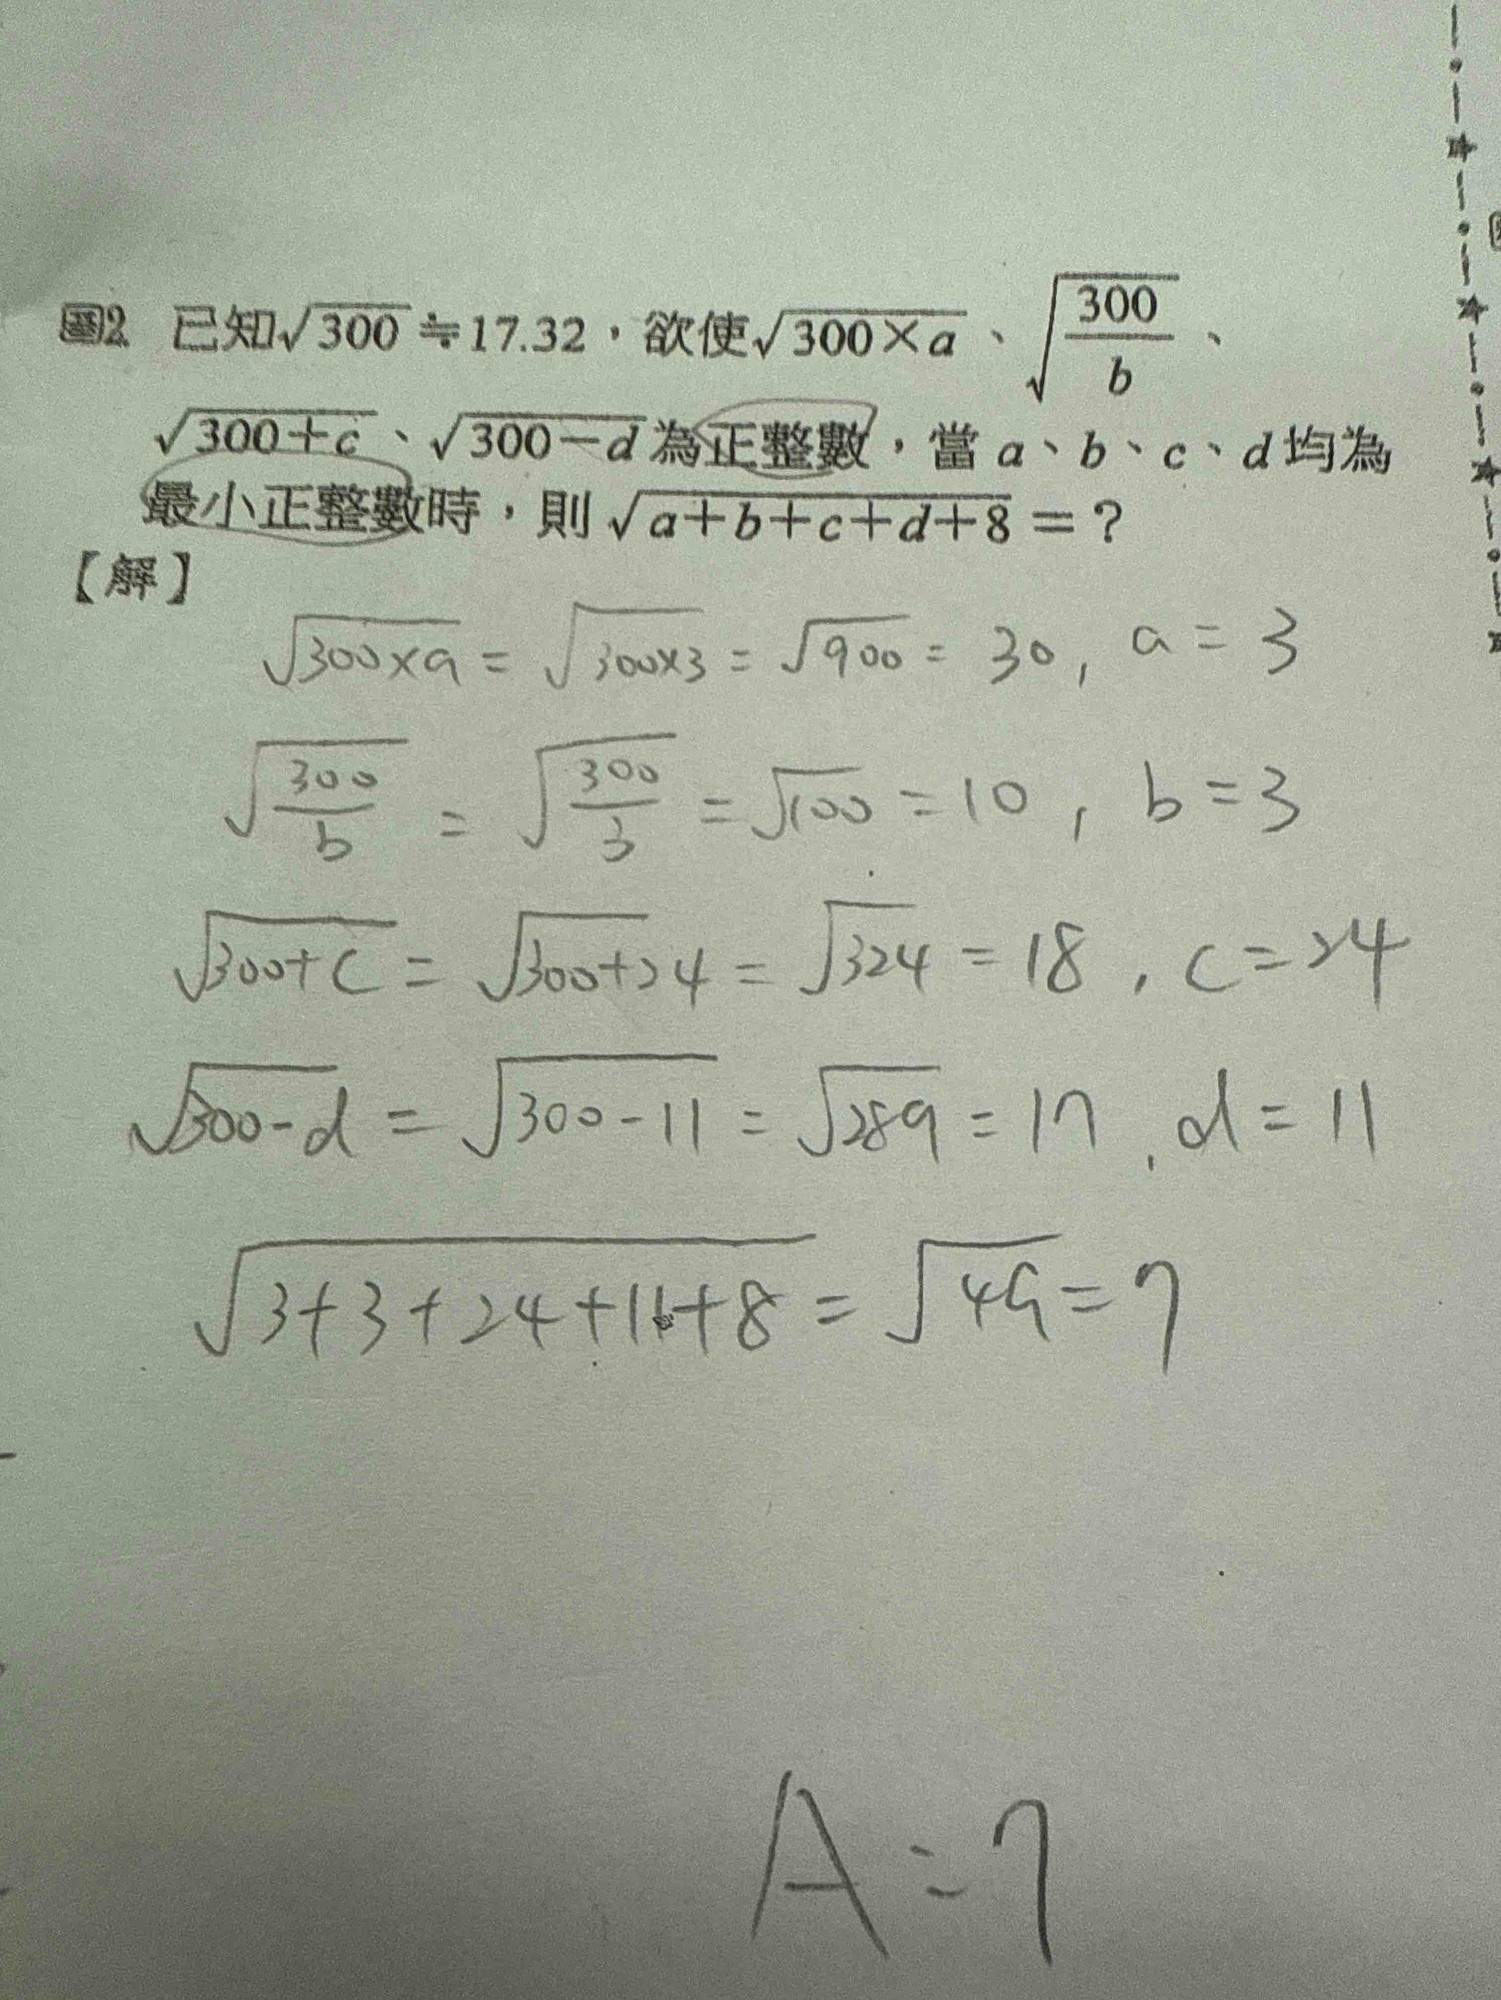 2 已知√300≒17.32，欲使√300×a、√(300/b)、
√300+c、√300−d為正整數，當 a、b、c、d 均為
最小正整數時，則 √a+b+c+d+8 = ?
【解】
√300×a = √300×3 = √900 = 30, a = 3
√(300/b) = √(300/3) = √100 = 10, b = 3
√300+c = √300+24 = √324 = 18, c = 24
√300-d = √300-11 = √289 = 17, d = 11
√3+3+24+11+8 = √49 = 7
A = 7